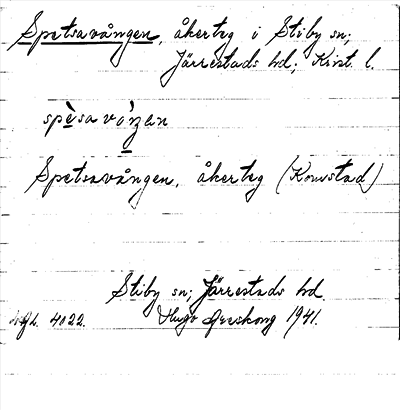 Spetsavången, åkerteg i Stiby sn;
Järrestads hd; Krist. l.
spèsa våŋen
Spetsavången, åkerteg (Komstad)
Stiby sn; Järrestads hd.
4022. Hugo Areskoug 1941.